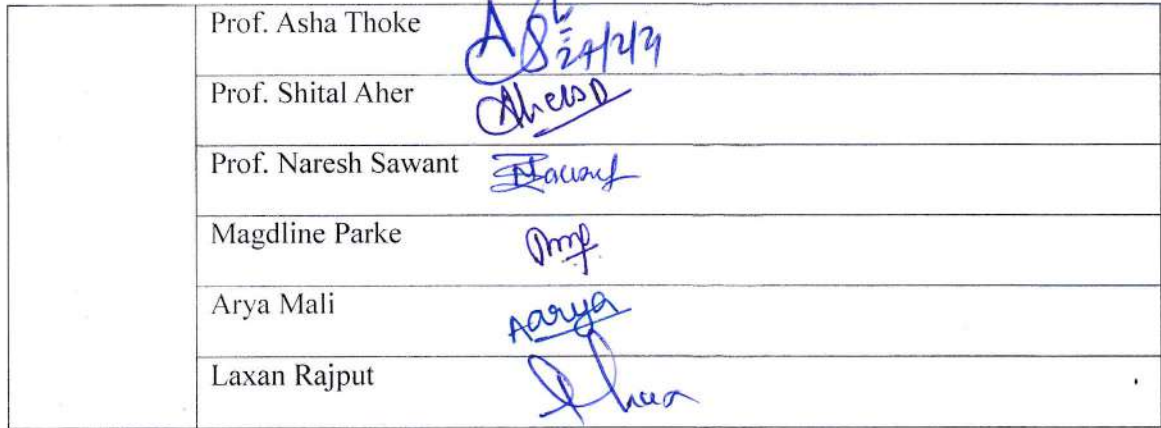 Prof. Asha Thoke
Prof. Shital Aher
Prof. Naresh Sawant
Magdline Parke
Arya Mali Aarya
Laxan Rajput